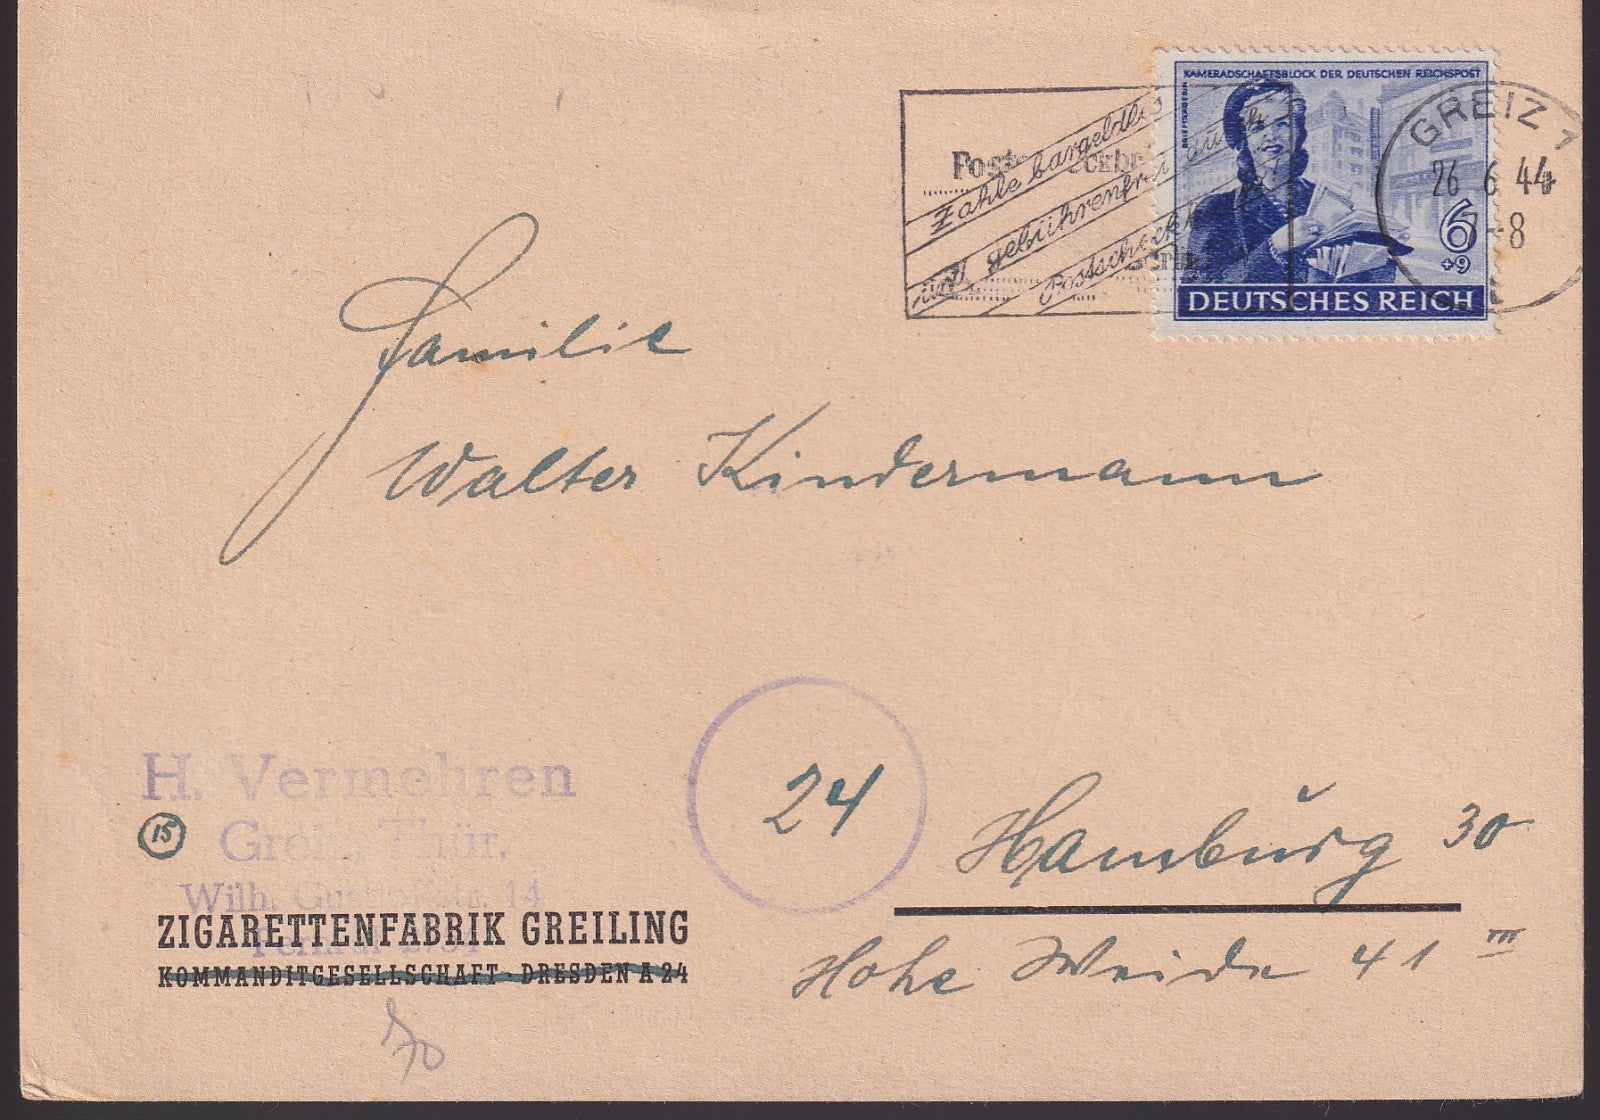 KAMERADSCHAFTSBLOCK DER DEUTSCHEN REICHSPOST
6
+9
DEUTSCHES REICH
GREIZ 1
26 6 44
7-8
Zahle bargeldlos
und gebührenfrei durch
Postscheck
Familie
Walter Kindermann
24
Hamburg 30
Hohe Weide 41 III
H. Vermehren
15
Greiz, Thür.
Wilh. Gustloffstr. 14
ZIGARETTENFABRIK GREILING
KOMMANDITGESELLSCHAFT · DRESDEN A 24